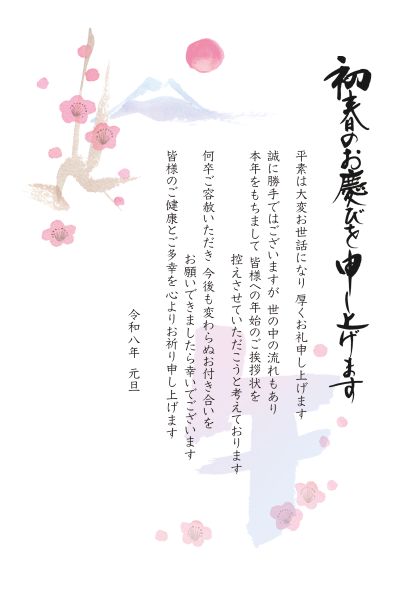 初春のお慶びを申し上げます
平素は大変お世話になり 厚くお礼申し上げます
誠に勝手ではございますが 世の中の流れもあり
本年をもちまして 皆様への年始のご挨拶状を
控えさせていただこうと考えております
何卒ご容赦いただき 今後も変わらぬお付き合いを
お願いできましたら幸いでございます
皆様のご健康とご多幸を 心よりお祈り申し上げます
令和八年 元旦
午